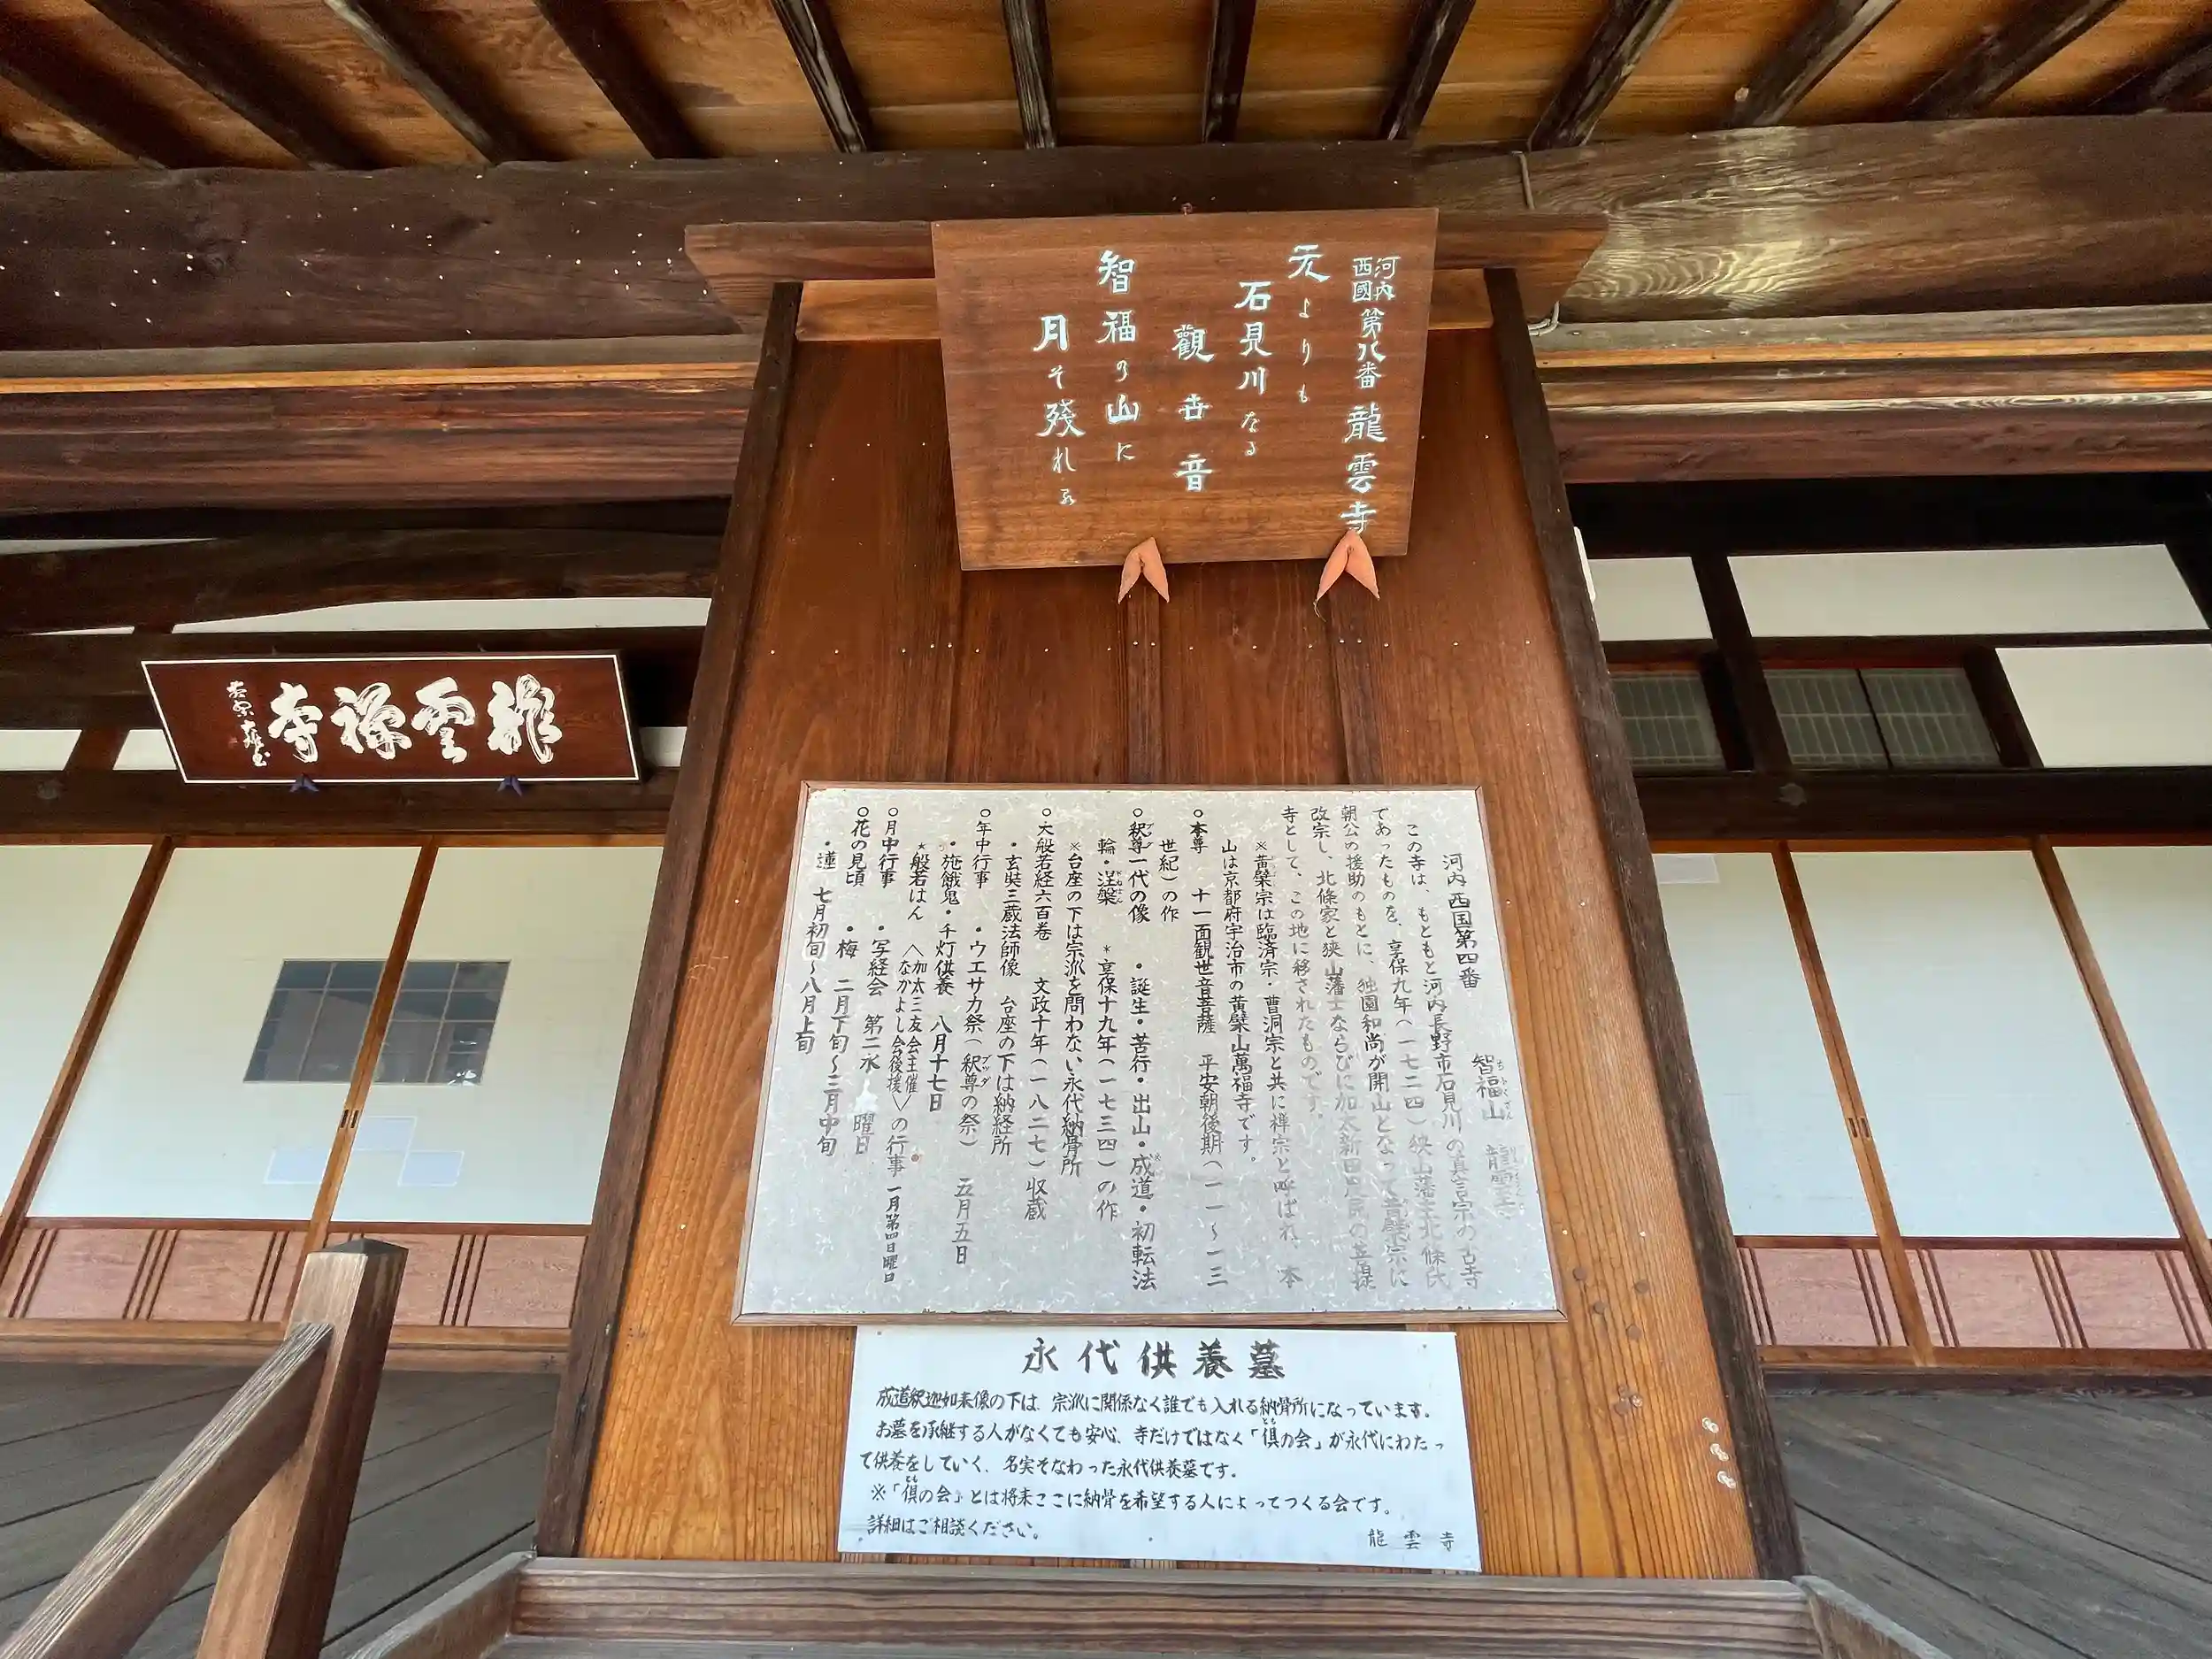 河内
西國 第八番 龍雲寺
元よりも
石見川なる
觀世音
智福の山に
月そ残れる
龍雲禅寺
河内西国第四番
智福山 龍雲寺
この寺は、もともと河内長野市石見川の真言宗の古寺
であったものを、享保九年(一七二四)狭山藩主北條氏
朝公の援助のもとに、独園和尚が開山となって黄檗宗に
改宗し、北條家と狭山藩士ならびに加太新田川民の菩提
寺として、この地に移されたものです。
※黄檗宗は臨済宗・曹洞宗と共に禅宗と呼ばれ、本
山は京都府宇治市の黄檗山萬福寺です。
○本尊 十一面観世音菩薩 平安朝後期(一一〜一三
世紀)の作
○釈尊一代の像 ・誕生・苦行・出山・成道・初転法
輪・涅槃 *享保十九年(一七三四)の作
※台座の下は宗派を問わない永代納骨所
○大般若経六百巻 文政十年(一八二七)収蔵
・玄奘三蔵法師像 台座の下は納経所
○年中行事 ・ウエサカ祭(釈尊の祭) 五月五日
・施餓鬼・千灯供養 八月十七日
*般若はん 〈加太三友会主催 なかよし会後援〉の行事 一月第四日曜日
○月中行事 ・写経会 第二水曜日
○花の見頃 ・梅 二月下旬〜三月中旬
・蓮 七月初旬〜八月上旬
永代供養墓
成道釈迦如来像の下は、宗派に関係なく誰でも入れる納骨所になっています。
お墓を承継する人がなくても安心、寺だけではなく「倶の会」が永代にわたっ
て供養をしていく、名実そなわった永代供養墓です。
※「倶の会」とは将来ここに納骨を希望する人によってつくる会です。
詳細はご相談ください。
龍雲寺